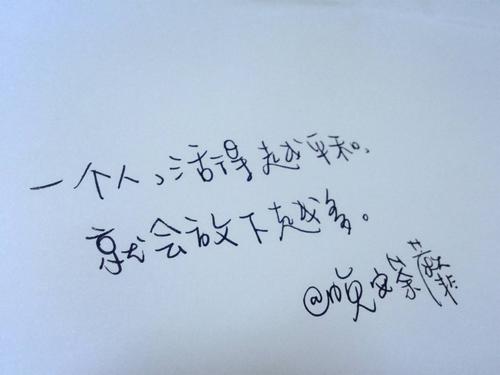 一个人，活得越平和，
就会放下越多。
@晚安荼蘼